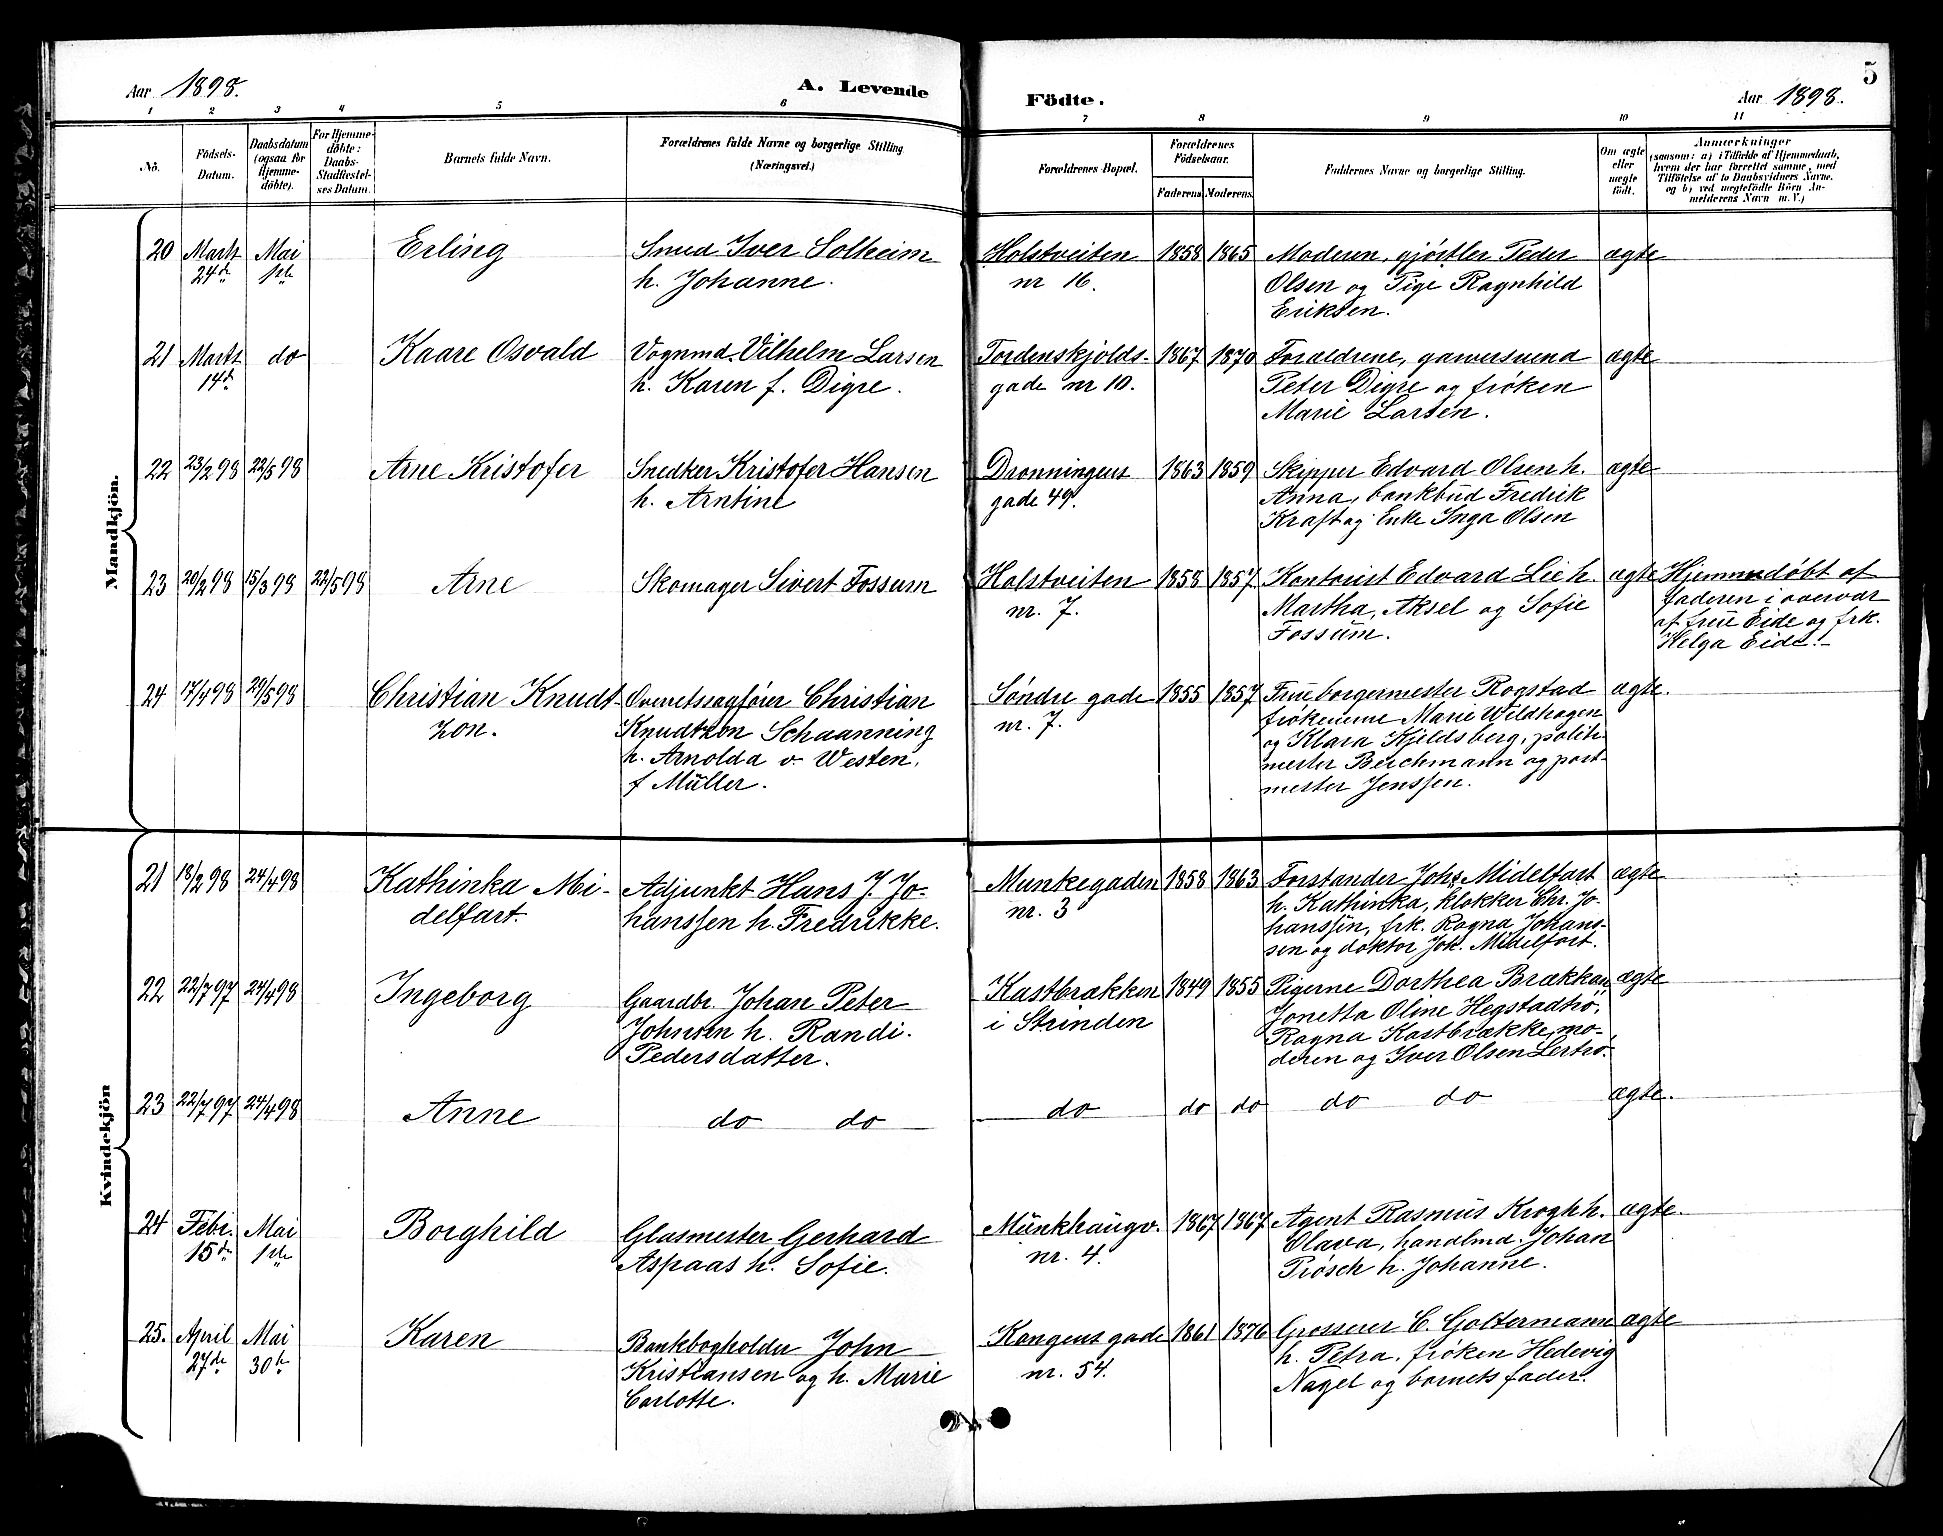 Aar 1898.
A. Levende
Födte.
Aar 1898.
5
1 2 3 4 5 6 7 8 9 10 11
No.
Födsels-
Datum.
Daabsdatum
(ogsaa for
Hjemme-
döbte).
For Hjemme-
döbte:
Daabs-
Stadfæstel-
ses Datum.
Barnets fulde Navn.
Forældrenes fulde Navne og borgerlige Stilling
(Næringsvei.)
Forældrenes Bopæl.
Forældrenes
Födselsaar.
Faderens. Moderens.
Faddernes Navne og borgerlige Stilling.
Om ægte
eller
uægte
födt.
Anmærkninger
(saasom: a) i Tilfælde af Hjemmedaab,
hvem der har forrettet samme, med
Tilföielse af to Daabsvidners Navne.
og b) ved uægtefödte Börn An-
melderens Navn m. V.)
Mandkjön.
20 Marts Mai Erling Smed Iver Solheim Holstveiten 1858 1865 Moderen, gjørtler Peder ægte
24de 1ste h. Johanne. nr 16. Olsen og Pige Ragnhild
Eriksen.
21 Marts do Kaare Osvald Vognmd. Vilhelm Larsen Tordenskjolds- 1867 1870 Forældrene, garversvend ægte
14de h. Karen f. Digre. gade nr 10. Peter Digre og frøken
Marie Larsen.
22 23/2 98 22/5 98 Arne Kristofer Snedker Kristofer Hansen Dronningens 1863 1859 Skipper Edvard Olsen h. ægte
h. Arntine gade 49. Anna, bankbud Fredrik
Kraft og Enke Inga Olsen
23 20/2 98 15/3 98 22/5 98 Arne Skomager Sivert Fossum Holstveiten 1858 1857 Kontorist Edvard Lie h. ægte Hjemmedøbt af
nr. 7. Martha, Aksel og Sofie faderen i overvær
Fossum. af frue Eide og frk.
Helga Eide.-
24 17/4 98 29/5 98 Christian Knudt- Overretssagfører Christian Søndre gade 1855 1857 Frue borgermester Rogstad ægte.
zon. Knudtzon Schaanning nr. 7. frøknerne Marie Wildhagen
h. Arnolda v. Westen, og Klara Kjeldsberg, politi-
f Müller. mester Berchmann og post-
mester Jenssen.
Kvindekjön
21 18/2 98 24/4 98 Kathinka Mi- Adjunkt Hans J. Jo- Munkegaden 1858 1863 Forstander Johs Midelfart ægte
delfart. hanssen h. Fredrikke. nr. 3 h. Kathinka, klokker Chr. Jo-
hanssen, frk. Ragna Johans-
sen og doktor Joh. Midelfart.
22 22/7 97 24/4 98 Ingeborg Gaardbr. Johan Peter Kastbrækken 1849 1855 Pigerne Dorthea Brækkan, ægte
Johnsen h. Randi i Strinden Jonetta Oline Hegstadtrø,
Pedersdatter. Ragna Kastbrække, mo-
deren og Iver Olsen Lertrø.
23 22/7 97 24/4 98 Anne do do do do do do do ægte.
24 Febr. Mai Borghild Glasmester Gerhard Munkhaugv. 1867 1867 Agent Rasmus Krogh h. ægte.
15de 1ste Aspaas h. Sofie. nr. 4. Olava, handlmd. Johan
Prøsch h. Johanne.
25. April Mai Karen Bankbogholder John Kongens gade 1861 1876 Grosserer C. Goltermann ægte
27de 30te Kristiansen og h. Marie nr. 54. h. Petra, frøken Hedevig
Carlotte. Nagel og barnets fader.